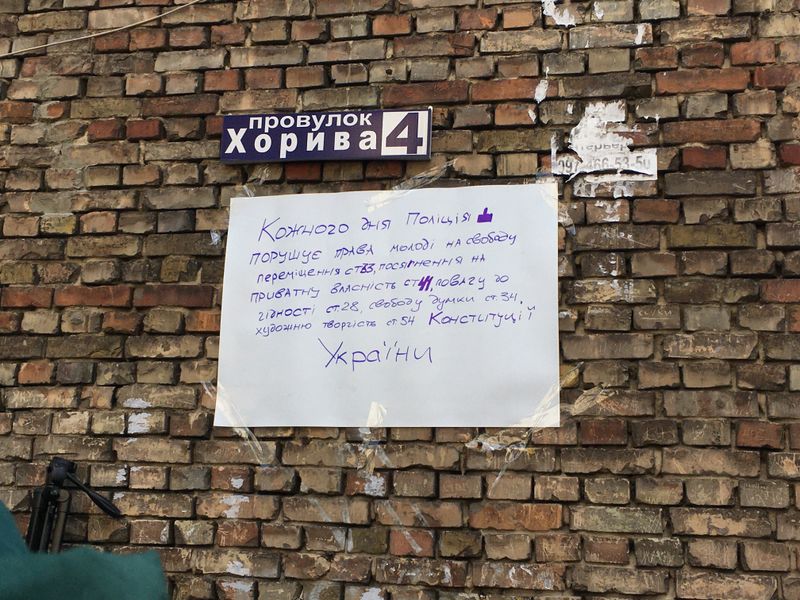 провулок
Хорива 4
Кожного дня Поліція
порушує права молоді на свободу
переміщення ст33, посягнення на
приватну власність ст41, повагу до
гідності ст.28, свободу думки ст.34,
художню творгість ст.54 Конституції
України
466-53-50